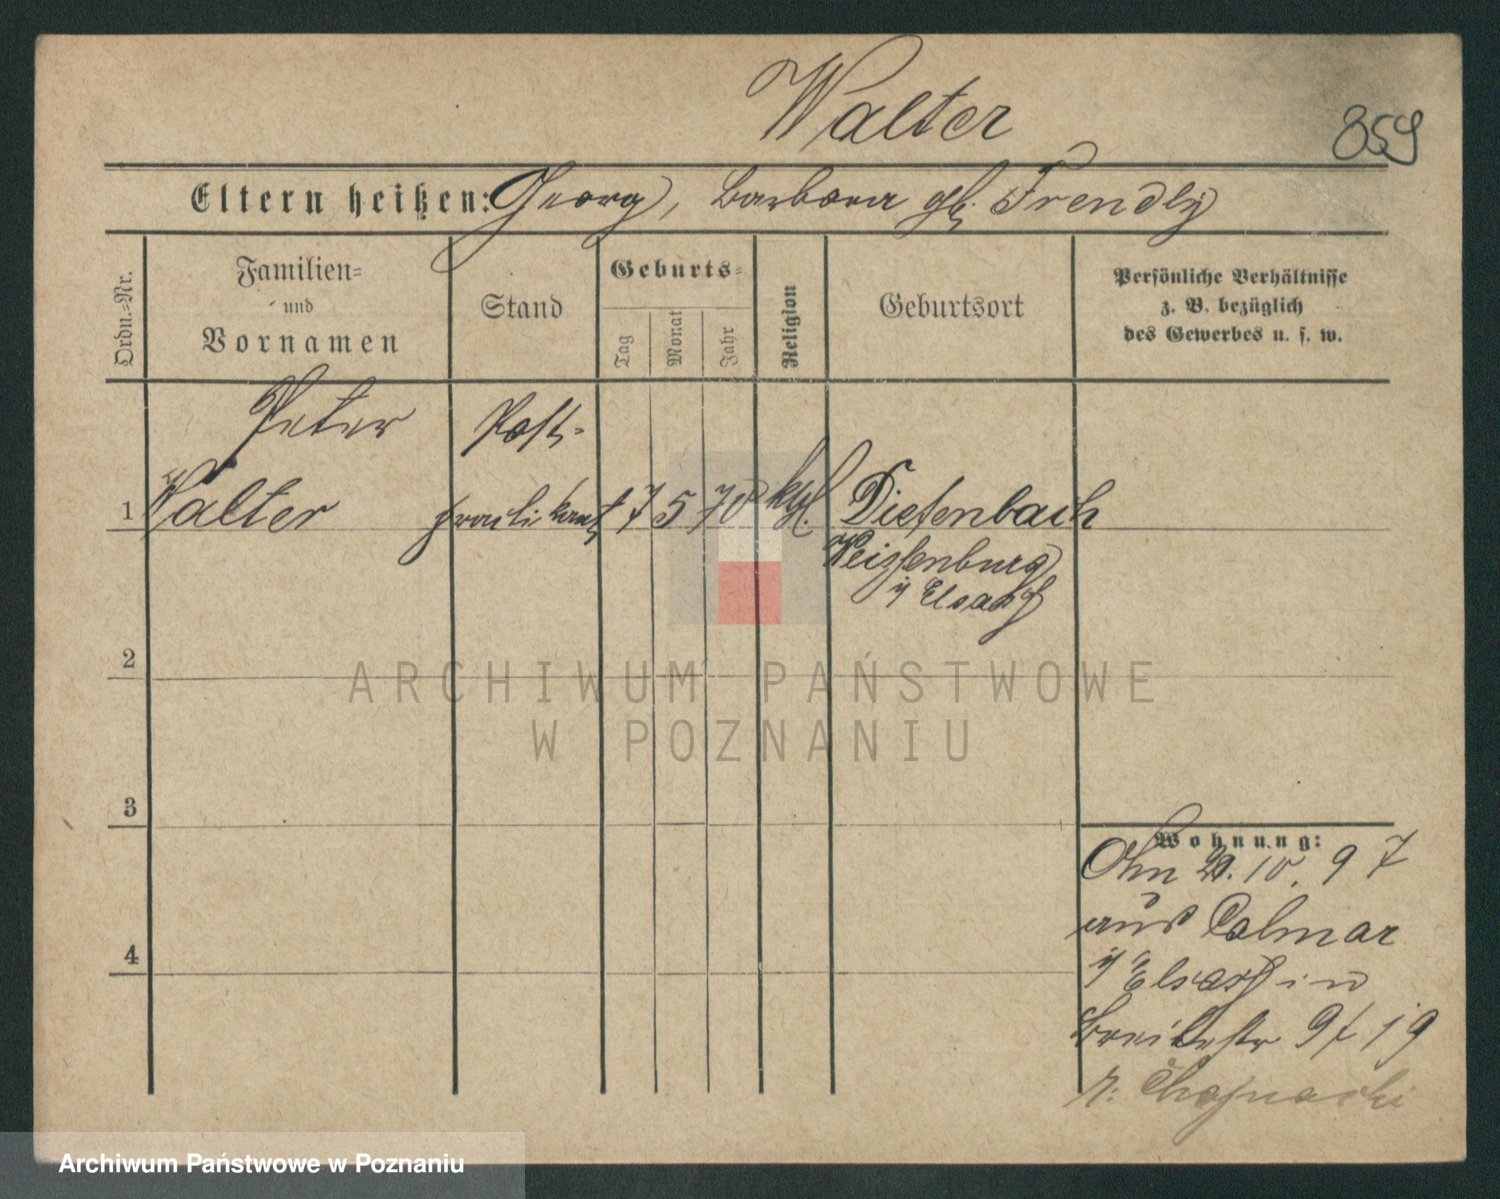 Walter
859
Eltern heißen: Georg, Barbara gb. Frendly
Ordn.=Nr.
Familien=
und
Vornamen
Stand
Geburts=
Tag
Monat
Jahr
Religion
Geburtsort
Persönliche Verhältnisse
z. B. bezüglich
des Gewerbes u. s. w.
Peter
Post-
1 Walter
praktikant
17 5 70
kth.
Diefenbach
Weißenburg
i/ Elsaß
2
ARCHIWUM PAŃSTWOWE
W POZNANIU
3
4
Wohnung:
10. 97
aus Colmar
i/ Elsaß in
Breitestr 9 / 19
Chojnacki
Archiwum Państwowe w Poznaniu